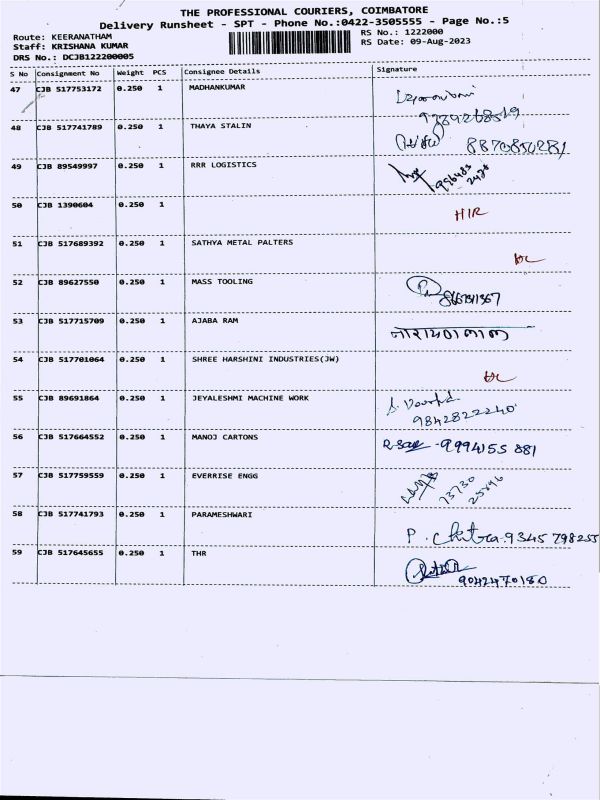 THE PROFESSIONAL COURIERS, COIMBATORE
Delivery Runsheet - SPT - Phone No.:0422-3505555 - Page No.:5
Route: KEERANATHAM
Staff: KRISHANA KUMAR
DRS No.: DCJB122200005
RS No.: 1222000
RS Date: 09-Aug-2023
S No Consignment No Weight PCS Consignee Details Signature
47 CJB 517753172 0.250 1 MADHANKUMAR
48 CJB 517741789 0.250 1 THAYA STALIN 8870850281
49 CJB 89549997 0.250 1 RRR LOGISTICS
50 CJB 1390604 0.250 1 HIR
51 CJB 517689392 0.250 1 SATHYA METAL PALTERS DC
52 CJB 89627550 0.250 1 MASS TOOLING
53 CJB 517715709 0.250 1 AJABA RAM नारायणलाल
54 CJB 517701064 0.250 1 SHREE HARSHINI INDUSTRIES(JW) DC
55 CJB 89691864 0.250 1 JEYALESHMI MACHINE WORK 9842822240
56 CJB 517664552 0.250 1 MANOJ CARTONS -9994155 881
57 CJB 517759559 0.250 1 EVERRISE ENGG 73730 25846
58 CJB 517741793 0.250 1 PARAMESHWARI P. Chitra-9345 798255
59 CJB 517645655 0.250 1 THR 9042470180